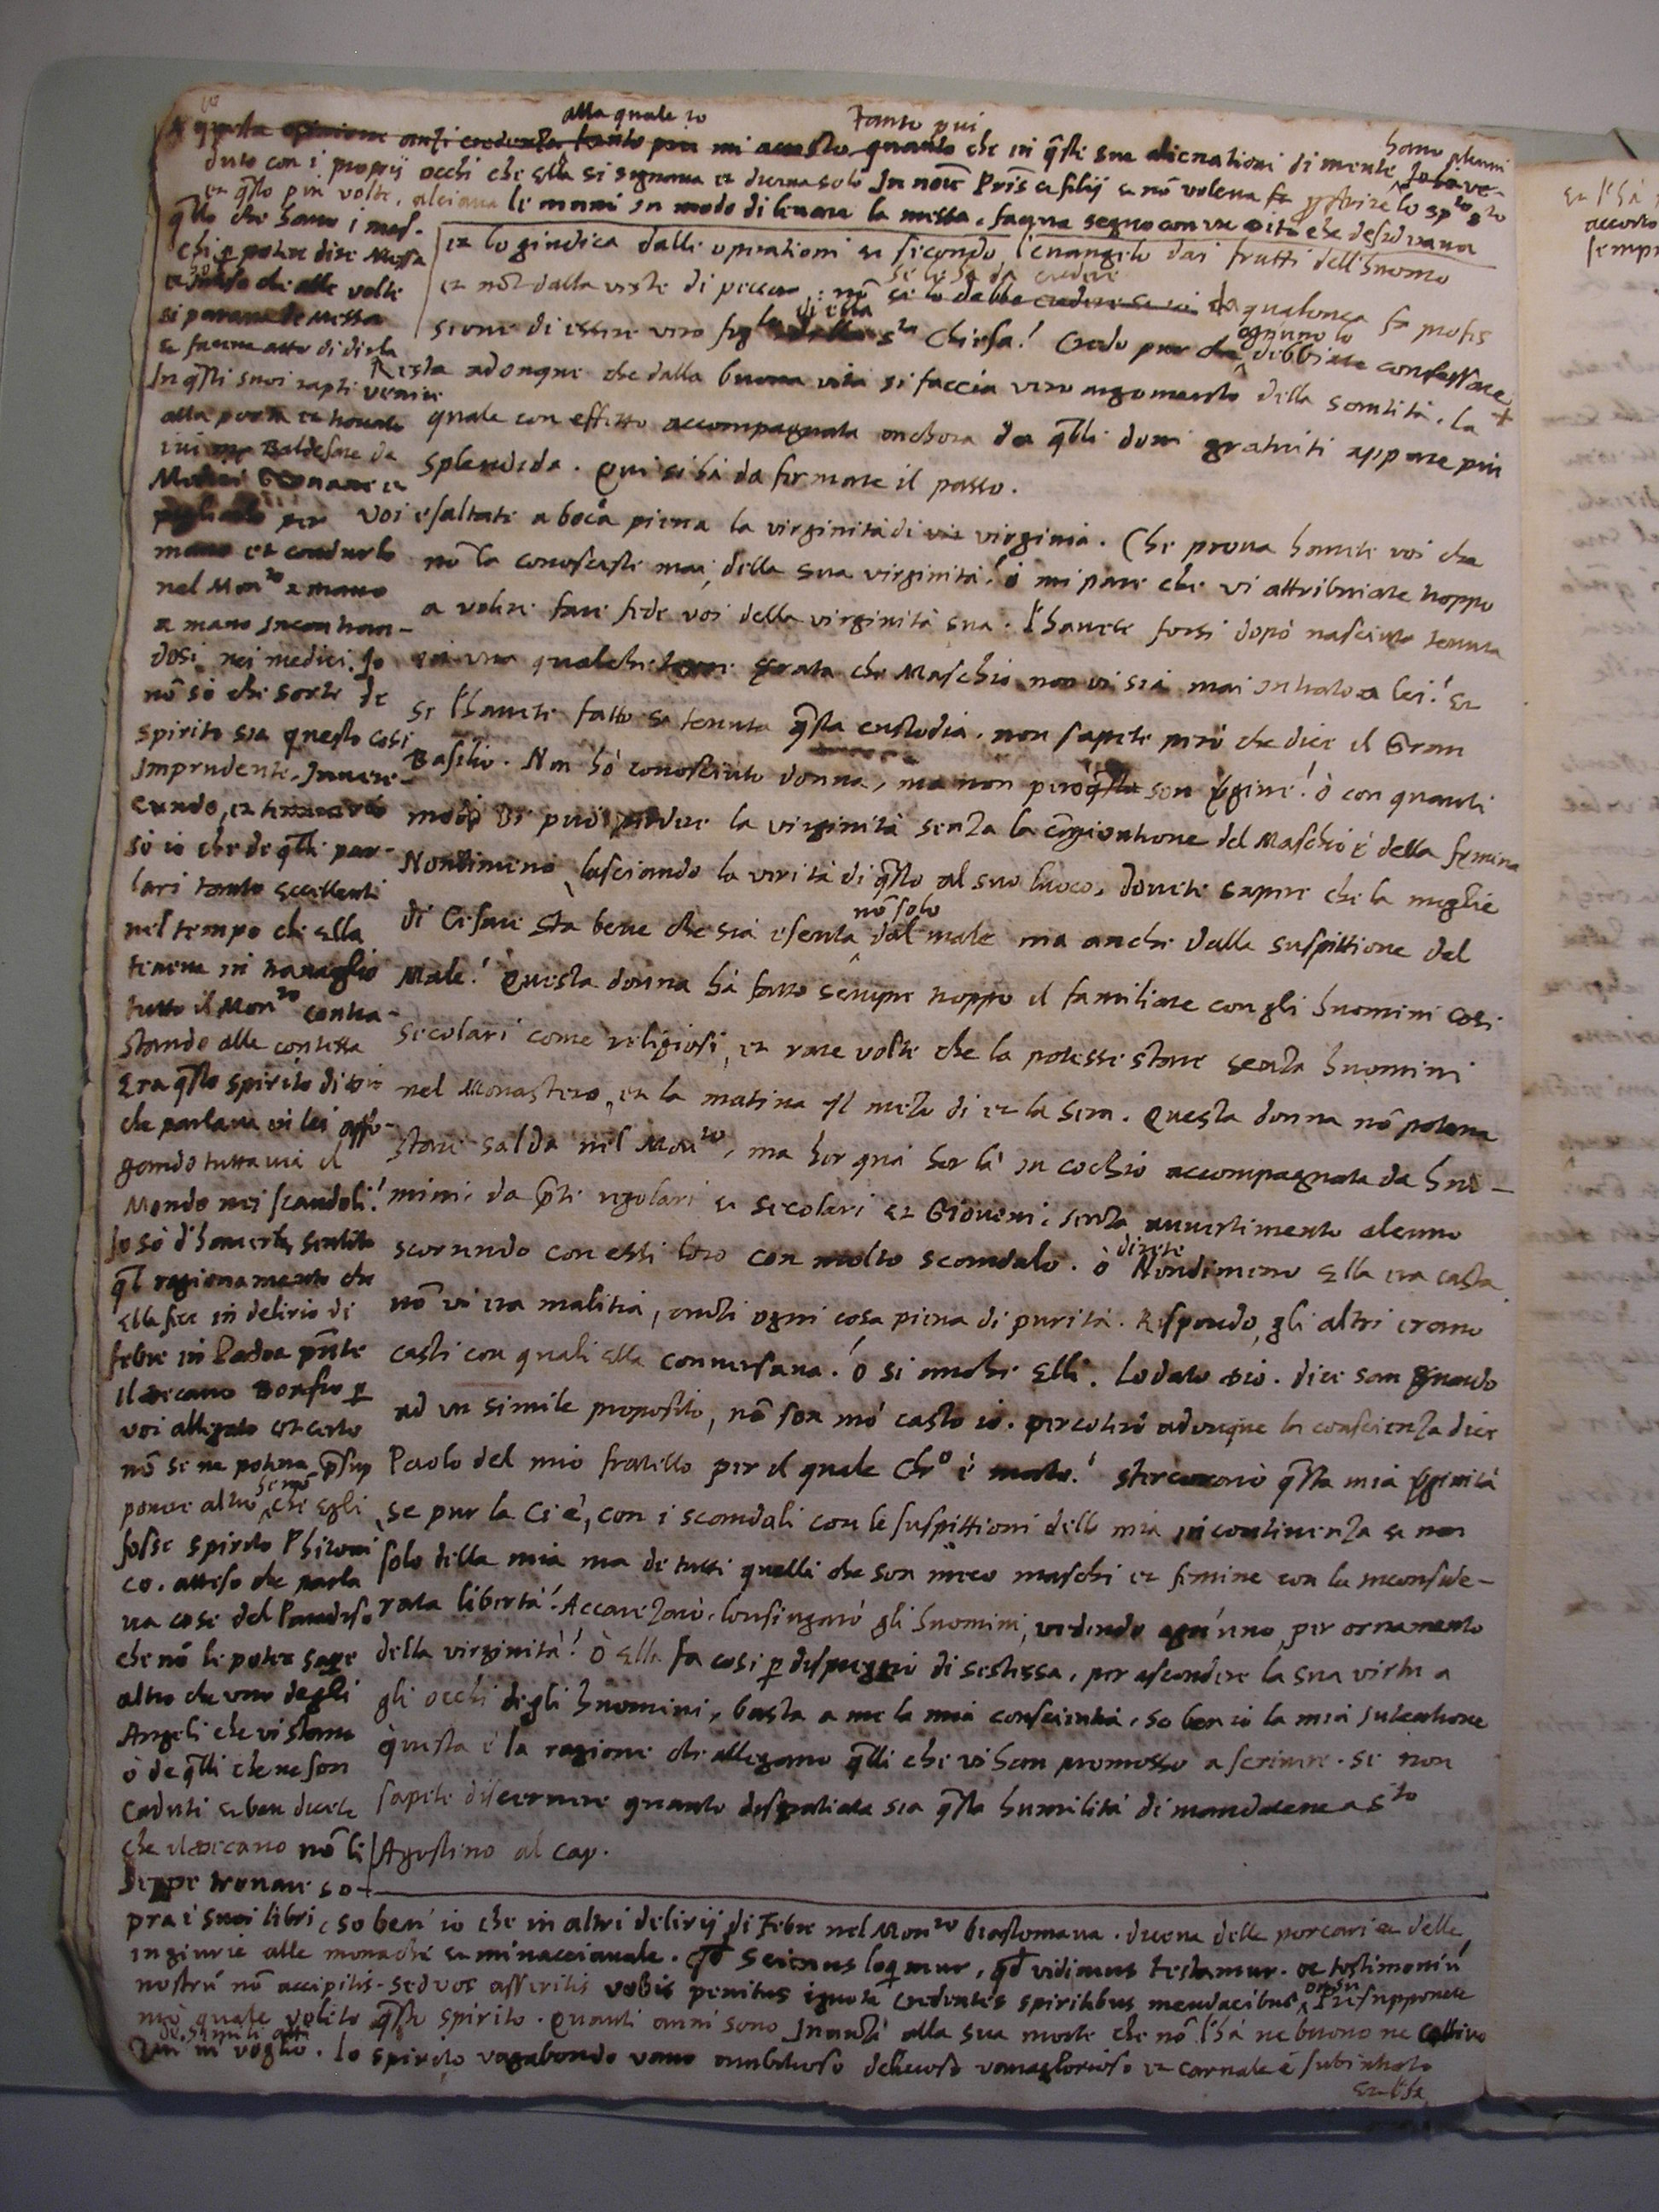 alla quale io Tanto piu
questa opinione anzi credenza tanto piu mi accosto quanto che in q̃sti sue alienationi di mente hano alcuni
duto con i proprij occhi che ella si segnaua et diceua solo In noīe Pr̄is et filij et nõ voleua proferire lo sp.to s.to
et q̃sto piu volte, alciaua le mani in modo di leuare la messa, faceua segno con un dito che desideraua
q̃llo che hano i mas-
chi p̱ poter dire Messa
che alle volte
si paraua da Messa
et faceua atto di dirla
In q̃sti suoi rapti venire
alla porta et trouato
iui Baldesare de
Medici et
per
mano et condurlo
nel Mon.ro a mano
a mano Incontran-
dosi nei medici. Io
nõ so che sorte de
spirito sia questo cosi
Imprudente, Inuere-
cundo, et temerario
so io che de q̃lli par-
lari tanto eccellenti
nel tempo che ella
teneua in trauaglio
tutto il Mon.ro contra-
stando alla contessa
Era q̃sto spirito di
che parlaua in lei
gando tuttauia il
Mondo nei scandoli!
Io so d'hauerla sentito
q̃l ragionamento che
ella fece in delirio di
febre in Padoa p̃nte
Il Decano Bonfio p̱
voi allegato et certo
nõ se ne poteua p̃sup
ponere altro se nõ che egli
fosse spirito Phitoni
co. atteso che parla
ua cose del Paradiso
che nõ le potea sap̱e
altro che uno degli
Angeli che vi stano
ò de q̃lli che ne son
caduti et ben dicete
che il Decano nõ li
seppe trouare so-
et lo giudica dalle operationi et secondo l'euangelo dai frutti dell'huomo
et nõ dalla veste di pecora: nõ se lo ha da credere se lo debbe credere da qualonca fa profes
sione di essere vero fig.lo di essa della s.ta Chiesa! Credo pur che ogniuno lo debbiate confessare
Resta adonque che dalla buona vita si faccia vero argomento della santità, la +
quale con effetto accompagnata anchora da q̃lli doni gratuiti appare piu
splendida. Qui si hà da fermare il passo.
Voi esaltate a bocca piena la virginità di virginia. Che proua hauete voi che
nõ la conosceste mai, della sua virginità! ò mi pare che vi attribuiate troppo
a volere fare fede voi della virginità sua. l'hauete forsi dopò nasciuta tenuta
in una qualche torre serata che Maschio non vi sia mai intrato a lei! Et
se l'hauete fatto et tenuta q̃sta custodia, non sapete però che dice il Gran
Basilio. Non hò conosciuto donna, ma non però q̃sto son v̱gine! ò con quanti
modi si può perdere la virginità senza la cõgiontione del Maschio è della femina
Nondimeno lasciando la verità di q̃sto al suo luoco, douete sapere che la moglie
di Cesare sta bene che sia esenta nõ solo dal male ma anche dalla suspittione del
Male! Questa donna hà fatto sempre troppo il familiare con gli huomini cosi
secolari come religiosi, et rare volte che la potesse stare senza huomini
nel Monastero, et la matina il mezo dì et la sera. Questa donna nõ poteua
stare salda nel Mon.ro, ma hor quà hor là in cochio accompagnata da huo-
mini, da p̃ti regolari et secolari et Gioueni, senza auuertimento alcuno
scorrendo con essi loro con molto scandalo. ò direte Nondimeno ella era casta
nõ vi era malitia, anzi ogni cosa piena di purità. Rispondo, gli altri erano
casti con quali ella conuersaua! ò si anche elli. Lodato Dio. dice san
ad un simile proposito, nõ son mò casto io. percoterò adonque la conscienza dice
Paolo del mio fratello per il quale Chr̃o è morto! stercorarò q̃sta mia v̱ginità
se pur la ci è, con i scandali con le suspittioni della mia incontinenza et non
solo della mia ma de tutti quelli che son meco maschi et femine con la inconside-
rata libertà! Accarezarò, lousingarò gli huomini, vedendo ogn'uno, per ornamento
della virginità! ò ella fa cosi p̱ dispreggio di se stessa, per ascondere la sua virtu a
gli occhi degli huomini, basta a me la mia conscientia, so ben io la mia intentione
questa è la ragione che allegano q̃lli che vi han promosso a scriuere. se non
sapete discernere quanto disgratiata sia q̃sta humilità dimandatene a s.to
Agostino al cap.
pra i suoi libri, so ben io che in altri delirij di febre nel Mon.ro biastemaua. diceua delle porcarie delle
ingiurie alle monache et minacciauale. q̃d scimus loq̱mur, q̃d vidimus testamur. et testimoniũ
nostrũ nõ accipitis. sed vos asseritis vobis penitus ignota credentes spiritibus mendacibus, Presupponete
mò quale volete q̃sto spirito. Quanti anni sono Inanzi alla sua morte che nõ l'hà ne buono ne cattiuo
voglio. lo spirito vagabondo vano ambitioso delicioso vanaglorioso et carnale è subintrato